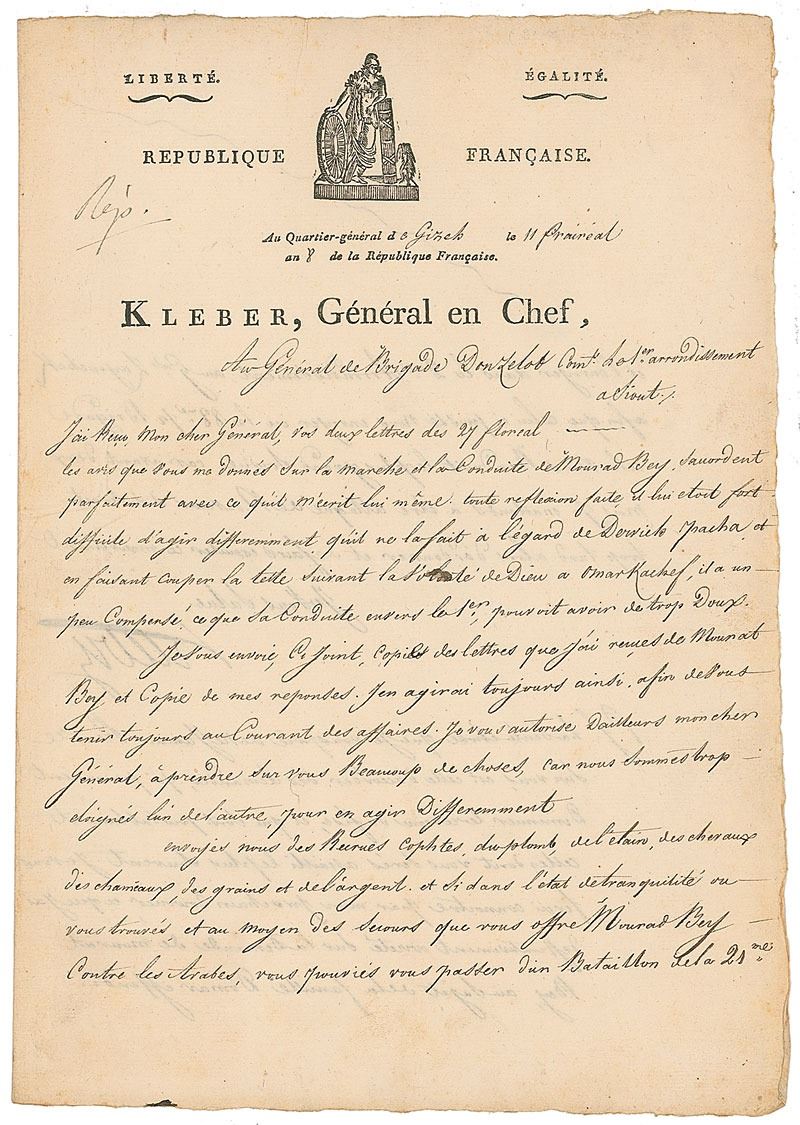 LIBERTÉ.
ÉGALITÉ.
REPUBLIQUE FRANÇAISE.
Rép.
Au Quartier-général de Gizeh le 11 Prairéal
an 8 de la République Française.
KLEBER, Général en Chef,
Au Général de Brigade Donzelot Com.t le 1.er arrondissement
a Siout./.
J'ai Reçu Mon cher Général, vos deux lettres des 27 floreal
les avis que Vous me donnés Sur la marche et la Conduite de Mourad Bey, s'acordent
parfaitement avec ce qu'il m'écrit lui même. toute reflexion faite, il lui etoit fort
difficile d'agir differemment qu'il ne la fait à l'égard de Derwich pacha, et
en faisant couper la tette suivant la Volonté de Dieu a Omar Kachef, il a un
peu Compensé, ce que Sa Conduite envers le 1.er, pouvoit avoir de trop Doux.
Je Vous envoie, Ci Joint, Copies des lettres que J'ai reçues de Mourat
Bey et Copie de mes reponses. J'en agirai toujours ainsi, afin de Vous
tenir toujours au Courant des affaires. Je vous autorise Dailleurs mon cher
Général, à prendre Sur vous Beaucoup de choses, car nous Sommes trop
éloignés l'un de l'autre, pour en agir Differemment
envoyés nous des Recrues Cophtes, du plomb, de l'étain, des chevaux
des chameaux, des grains et de l'argent. et Si dans l'état de tranquilité ou
vous trouvés, et au moyen des secours que vous offre Mourad Bey
Contre les Arabes, vous pouviés vous passer d'un Bataillon de la 21.me